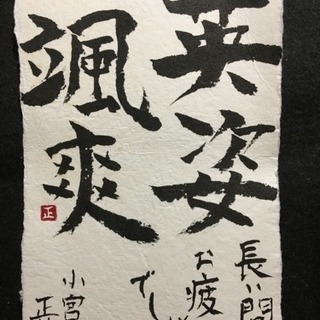 英姿
颯爽
長い間
お疲れ
でし
小宮
正
正